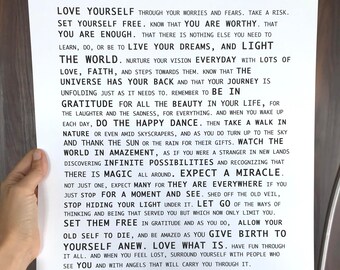 LOVE YOURSELF THROUGH YOUR WORRIES AND FEARS. TAKE A RISK.
SET YOURSELF FREE. KNOW THAT YOU ARE WORTHY. THAT
YOU ARE ENOUGH. THAT THERE IS NOTHING ELSE YOU NEED TO
LEARN, DO, OR BE TO LIVE YOUR DREAMS, AND LIGHT
THE WORLD. NURTURE YOUR VISION EVERYDAY WITH LOTS OF
LOVE, FAITH, AND STEPS TOWARDS THEM. KNOW THAT THE
UNIVERSE HAS YOUR BACK AND THAT YOUR JOURNEY IS
UNFOLDING JUST AS IT NEEDS TO. REMEMBER TO BE IN
GRATITUDE FOR ALL THE BEAUTY IN YOUR LIFE, FOR
THE LAUGHTER AND THE SADNESS, FOR EVERYTHING. AND WHEN YOU WAKE UP
EACH DAY, DO THE HAPPY DANCE. THEN TAKE A WALK IN
NATURE OR EVEN AMID SKYSCRAPERS, AND AS YOU DO TURN UP TO THE SKY
AND THANK THE SUN OR THE RAIN FOR THEIR GIFTS. WATCH THE
WORLD IN AMAZEMENT, AS IF YOU WERE A STRANGER IN NEW LANDS
DISCOVERING INFINITE POSSIBILITIES AND RECOGNIZING THAT
THERE IS MAGIC ALL AROUND. EXPECT A MIRACLE.
NOT JUST ONE, EXPECT MANY FOR THEY ARE EVERYWHERE IF YOU
JUST STOP FOR A MOMENT AND SEE. SHED OFF THE OLD VEIL,
STOP HIDING YOUR LIGHT UNDER IT. LET GO OF THE WAYS OF
THINKING AND BEING THAT SERVED YOU BUT WHICH NOW ONLY LIMIT YOU.
SET THEM FREE IN GRATITUDE AND AS YOU DO, ALLOW YOUR
OLD SELF TO DIE, AND BE AMAZED AS YOU GIVE BIRTH TO
YOURSELF ANEW. LOVE WHAT IS. HAVE FUN THROUGH
IT ALL. AND WHEN YOU FEEL LOST, SURROUND YOURSELF WITH PEOPLE WHO
SEE YOU AND WITH ANGELS THAT WILL CARRY YOU THROUGH IT.